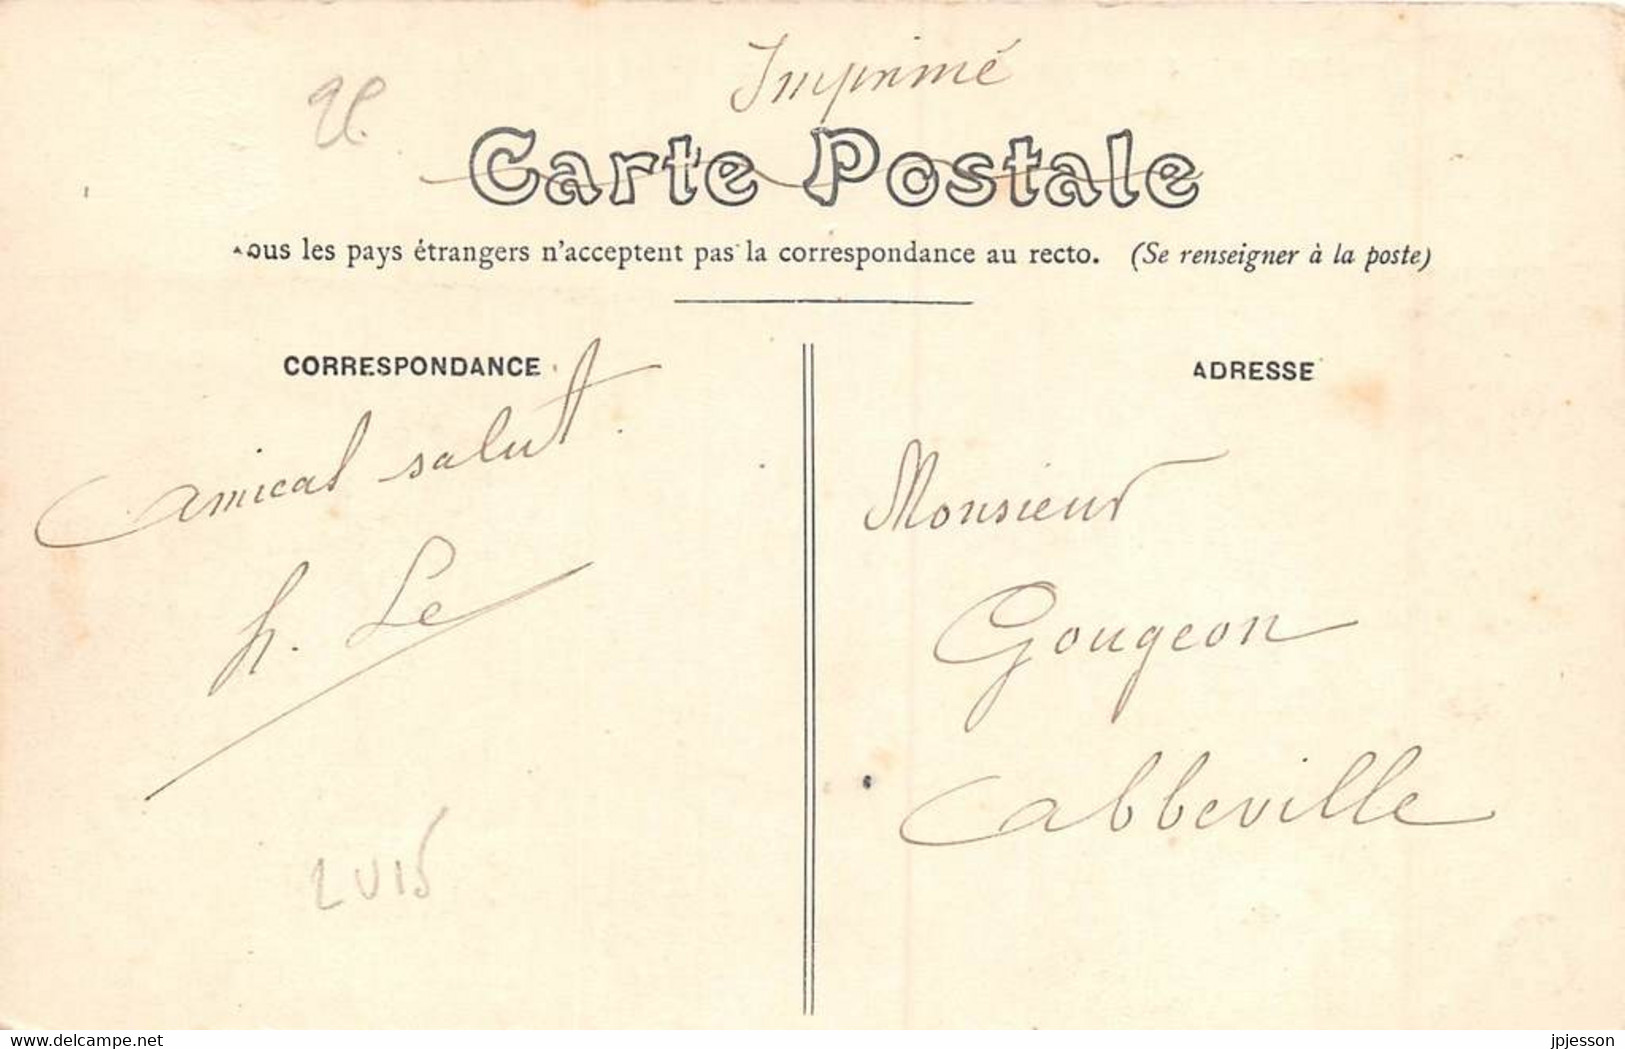 Imprimé
Carte Postale
ous les pays étrangers n'acceptent pas la correspondance au recto. (Se renseigner à la poste)
CORRESPONDANCE
Amical salut.
h. Le
ADRESSE
Monsieur
Gougeon
Abbeville
delcampe.net
jpjesson